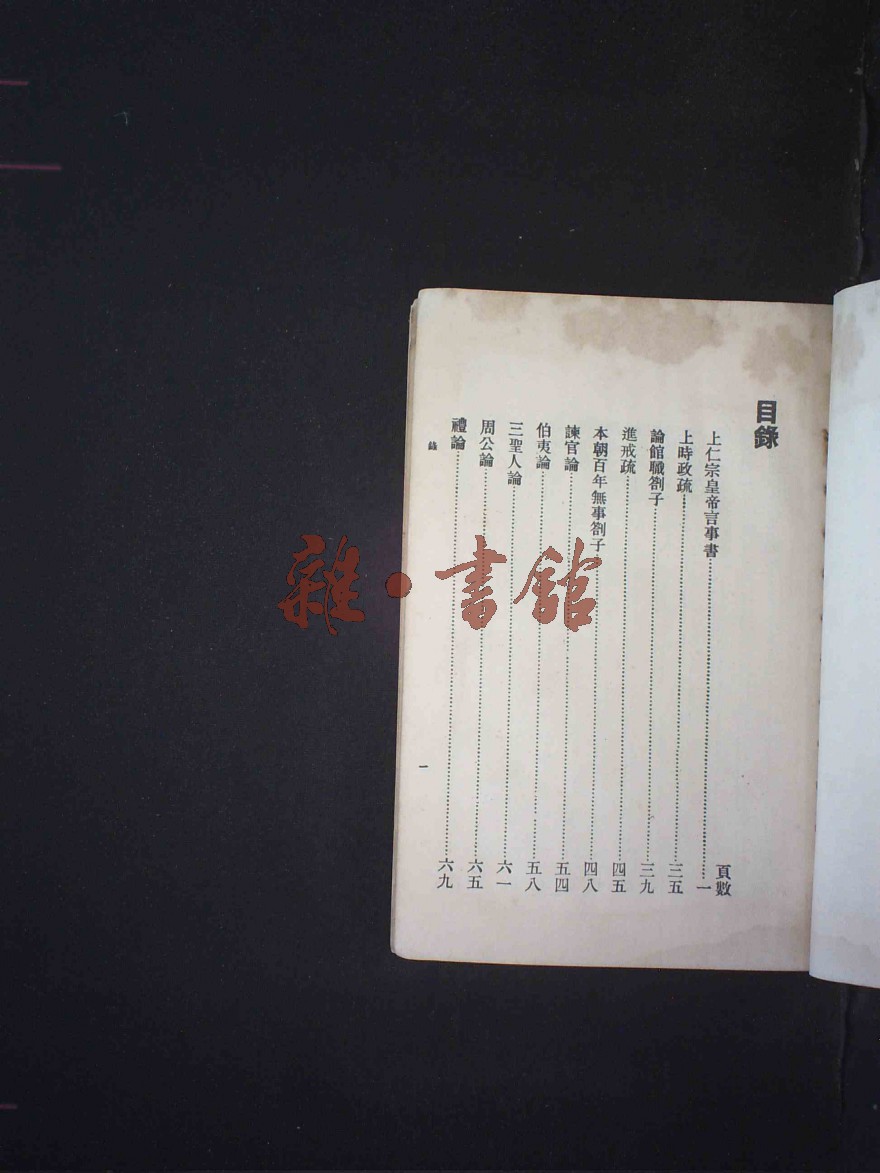 目錄
頁數
上仁宗皇帝言事書……一
上時政疏……三五
論館職劄子……三九
進戒疏……四五
本朝百年無事劄子……四八
諫官論……五四
伯夷論……五八
三聖人論……六一
周公論……六五
禮論……六九
錄
一
雜·書館